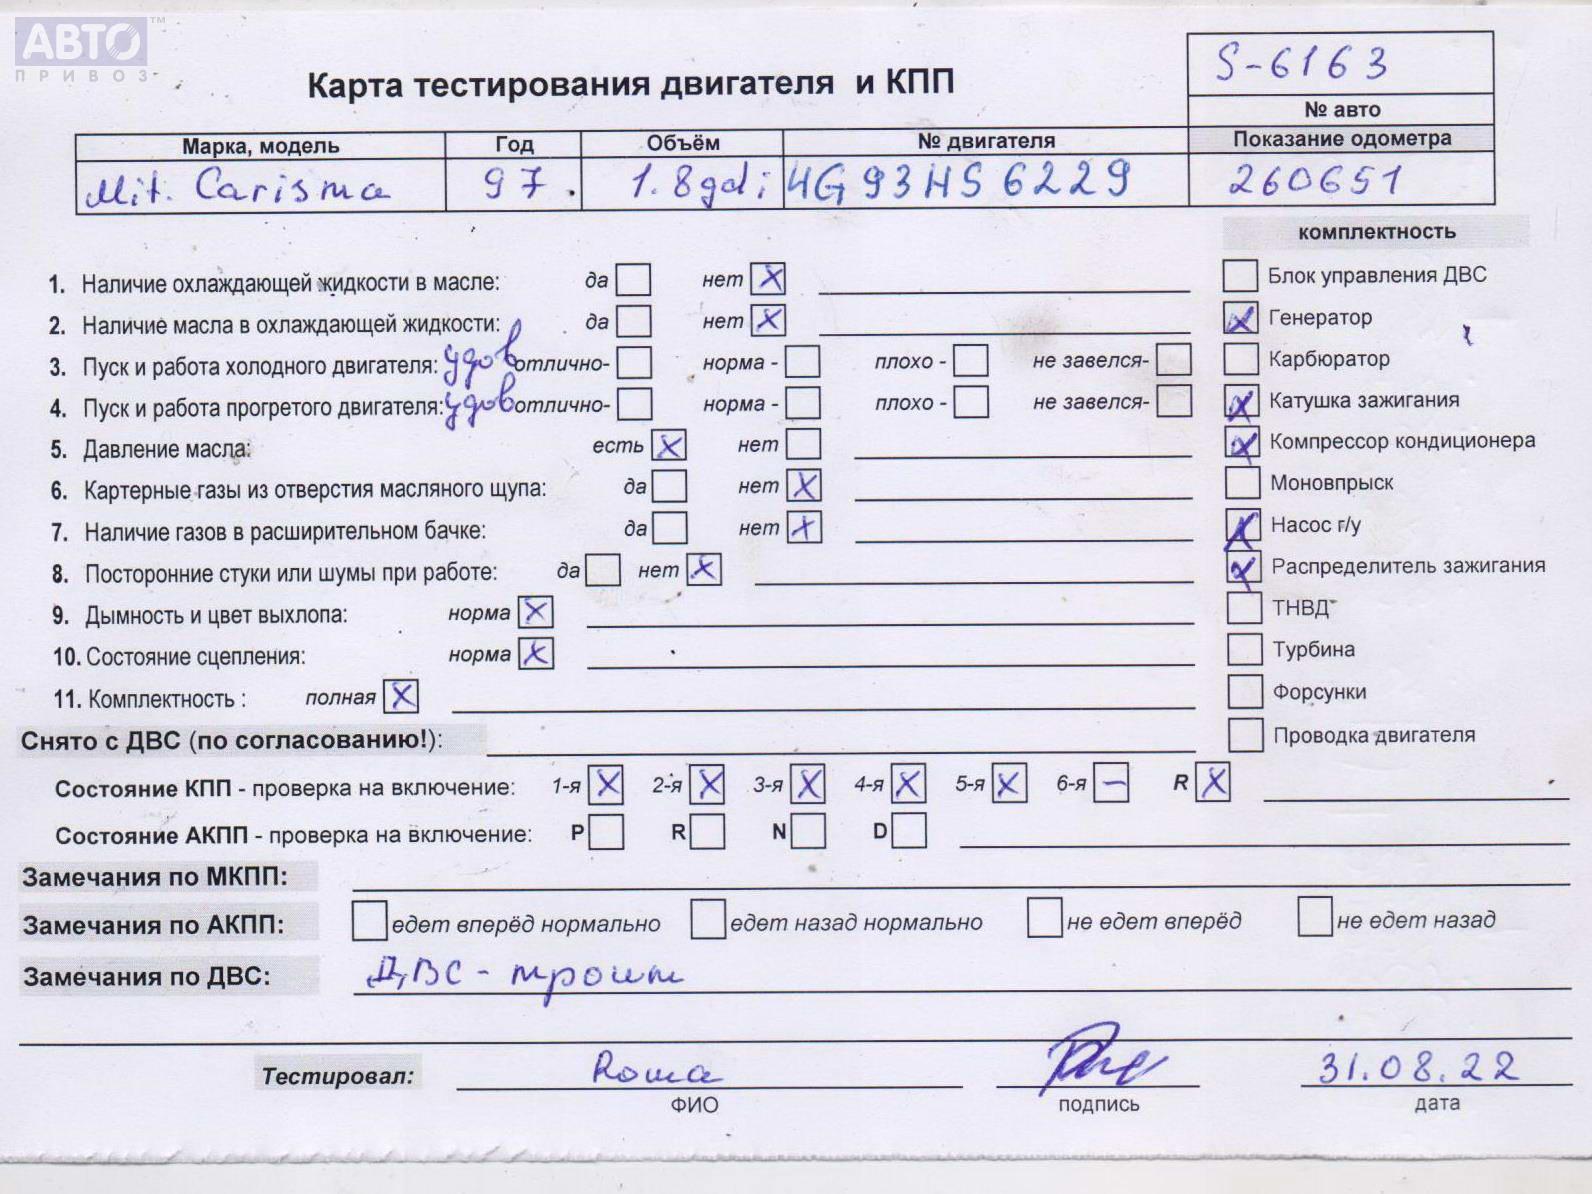 АВТО™
ПРИВОЗ
S-6163
Карта тестирования двигателя и КПП
№ авто
Марка, модель Год Объём № двигателя Показание одометра
Mit. Carisma 97. 1.8gdi 4G93HS6229 260651
комплектность
1. Наличие охлаждающей жидкости в масле: да нет X
Блок управления ДВС
2. Наличие масла в охлаждающей жидкости: да нет X
X Генератор
3. Пуск и работа холодного двигателя: удов отлично- норма - плохо - не завелся-
Карбюратор
4. Пуск и работа прогретого двигателя: удов отлично- норма - плохо - не завелся-
X Катушка зажигания
5. Давление масла: есть X нет
X Компрессор кондиционера
6. Картерные газы из отверстия масляного щупа: да нет X
Моновпрыск
7. Наличие газов в расширительном бачке: да нет X
X Насос г/у
8. Посторонние стуки или шумы при работе: да нет X
X Распределитель зажигания
9. Дымность и цвет выхлопа: норма X
ТНВД
10. Состояние сцепления: норма X
Турбина
11. Комплектность : полная X
Форсунки
Снято с ДВС (по согласованию!):
Проводка двигателя
Состояние КПП - проверка на включение: 1-я X 2-я X 3-я X 4-я X 5-я X 6-я – R X
Состояние АКПП - проверка на включение: P R N D
Замечания по МКПП:
Замечания по АКПП: едет вперёд нормально едет назад нормально не едет вперёд не едет назад
Замечания по ДВС: ДВС - троит
Тестировал: Рома 31.08.22
ФИО подпись дата